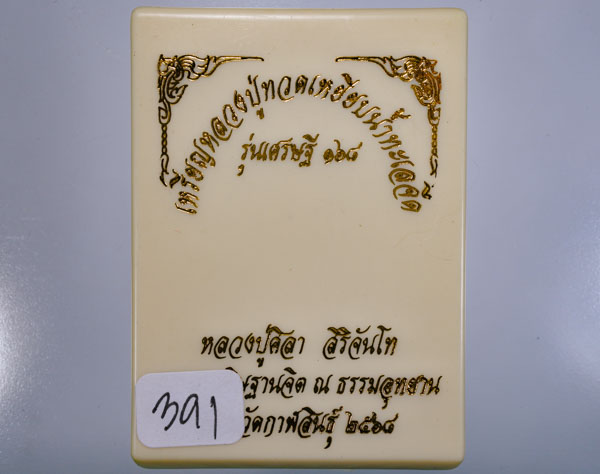 เหรียญหลวงปู่ทวดเหยียบน้ำทะเลจืด
รุ่นเศรษฐี ๑๖๘
หลวงปู่ศิลา สิริจันโท
ษฐานจิต ณ ธรรมอุทยาน
วัดกาฬสินธุ์ ๒๕๖๘
391